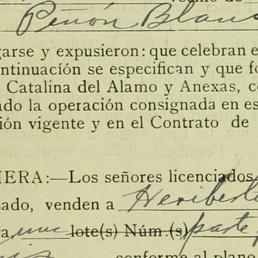 Peñón Blanc
garse y expusieron: que celebran e
ontinuación se especifican y que fo
Catalina del Alamo y Anexas, co
ado la operación consignada en es
ión vigente y en el Contrato de
ERA:—Los señores licenciados
ado, venden a Heriberto
a una lote(s) Núm.(s) parte
conforme al plano